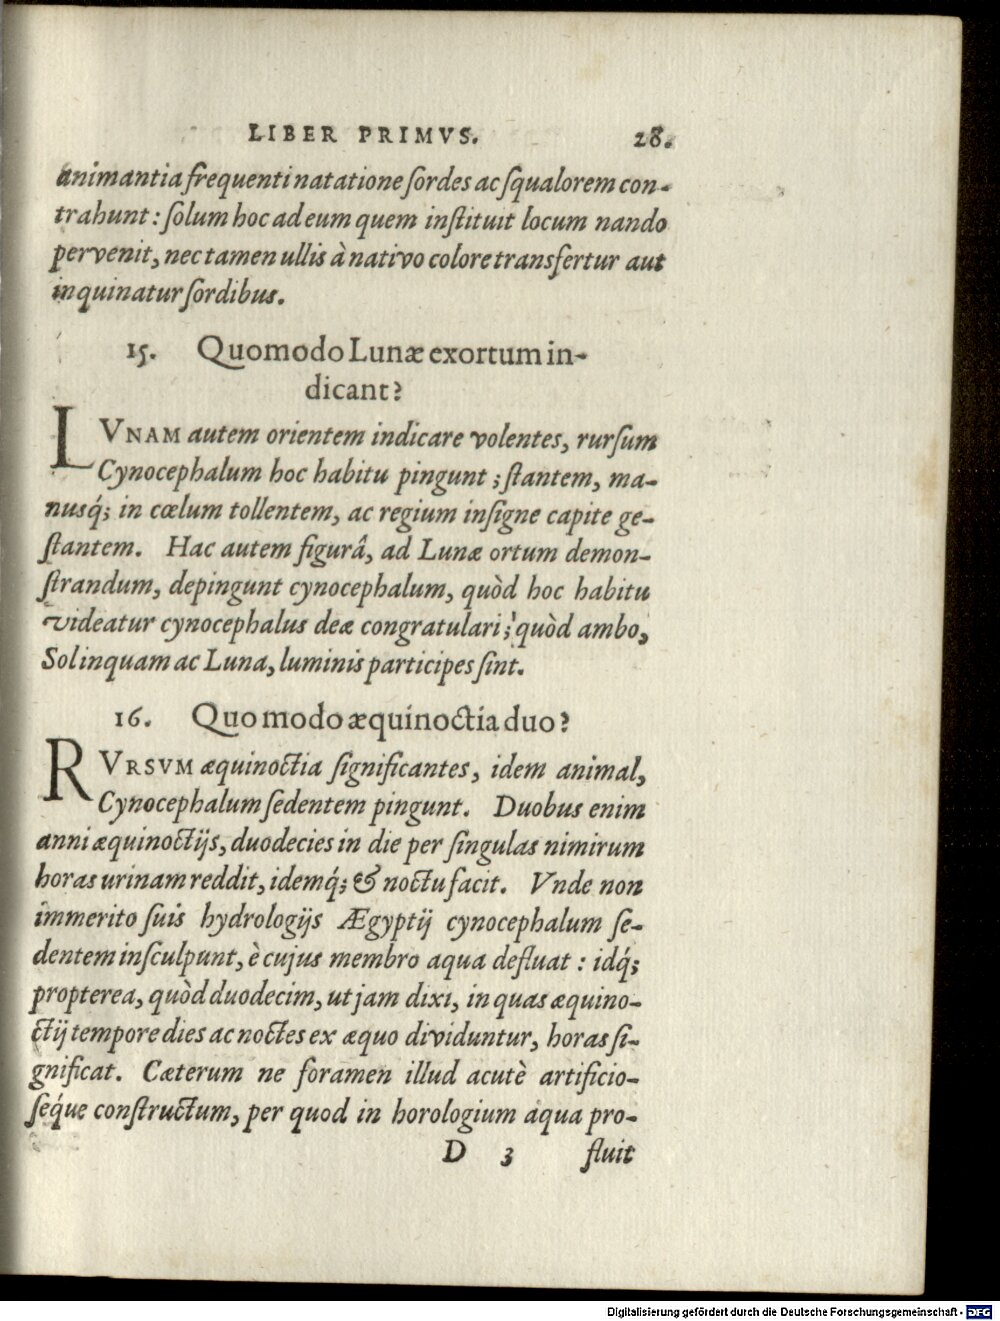 LIBER PRIMVS. 28.
animantia frequenti natatione ſordes ac ſqualorem con-
trahunt: ſolum hoc ad eum quem inſtituit locum nando
pervenit, nec tamen ullis à nativo colore transfertur aut
inquinatur ſordibus.
15. Quomodo Lunæ exortum in-
dicant?
LVNAM autem orientem indicare volentes, rurſum
Cynocephalum hoc habitu pingunt; ſtantem, ma-
nusq́; in cœlum tollentem, ac regium inſigne capite ge-
ſtantem. Hac autem figurâ, ad Lunæ ortum demon-
ſtrandum, depingunt cynocephalum, quòd hoc habitu
videatur cynocephalus deæ congratulari; quòd ambo,
Sol inquam ac Luna, luminis participes ſint.
16. Quomodo æquinoctia duo?
RVRSVM æquinoctia ſignificantes, idem animal,
Cynocephalum ſedentem pingunt. Duobus enim
anni æquinoctijs, duodecies in die per ſingulas nimirum
horas urinam reddit, idemq́; & noctu facit. Vnde non
immerito ſuis hydrologijs Ægyptij cynocephalum ſe-
dentem inſculpunt, è cujus membro aqua defluat: idq́;
propterea, quòd duodecim, ut jam dixi, in quas æquino-
ctij tempore dies ac noctes ex æquo dividuntur, horas ſi-
gnificat. Cæterum ne foramen illud acutè artificio-
ſeq́ue conſtructum, per quod in horologium aqua pro-
D 3 fluit
Digitalisierung gefördert durch die Deutsche Forschungsgemeinschaft - DFG